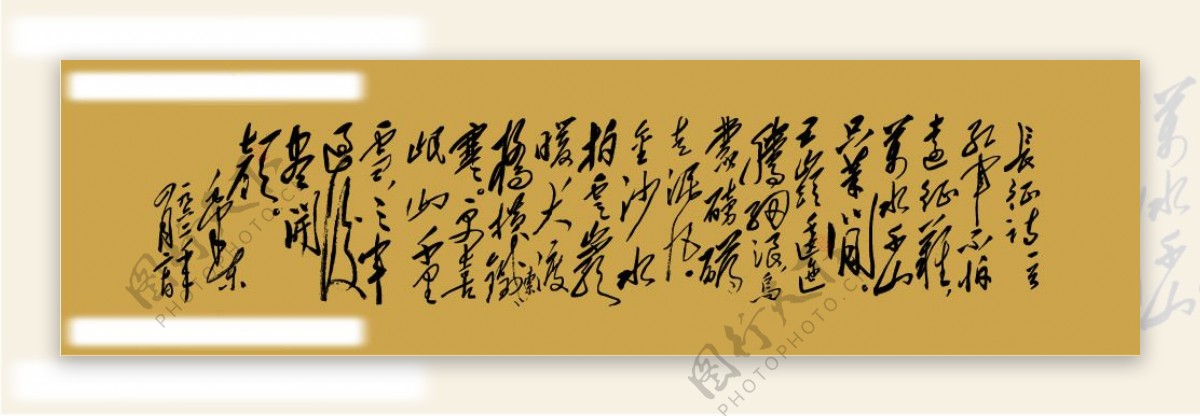 長征詩一首
紅軍不怕
遠征難，
萬水千山
只等閑。
五嶺逶迤
騰細浪，烏
蒙磅礴
走泥丸。
金沙水
拍雲崖
暖，大渡
橋橫鐵索
寒。更喜
岷山千里
雪，三軍
過後
盡開
顏。
毛澤東
萬水千山
图行天下
PHOTOPHOTO.CN